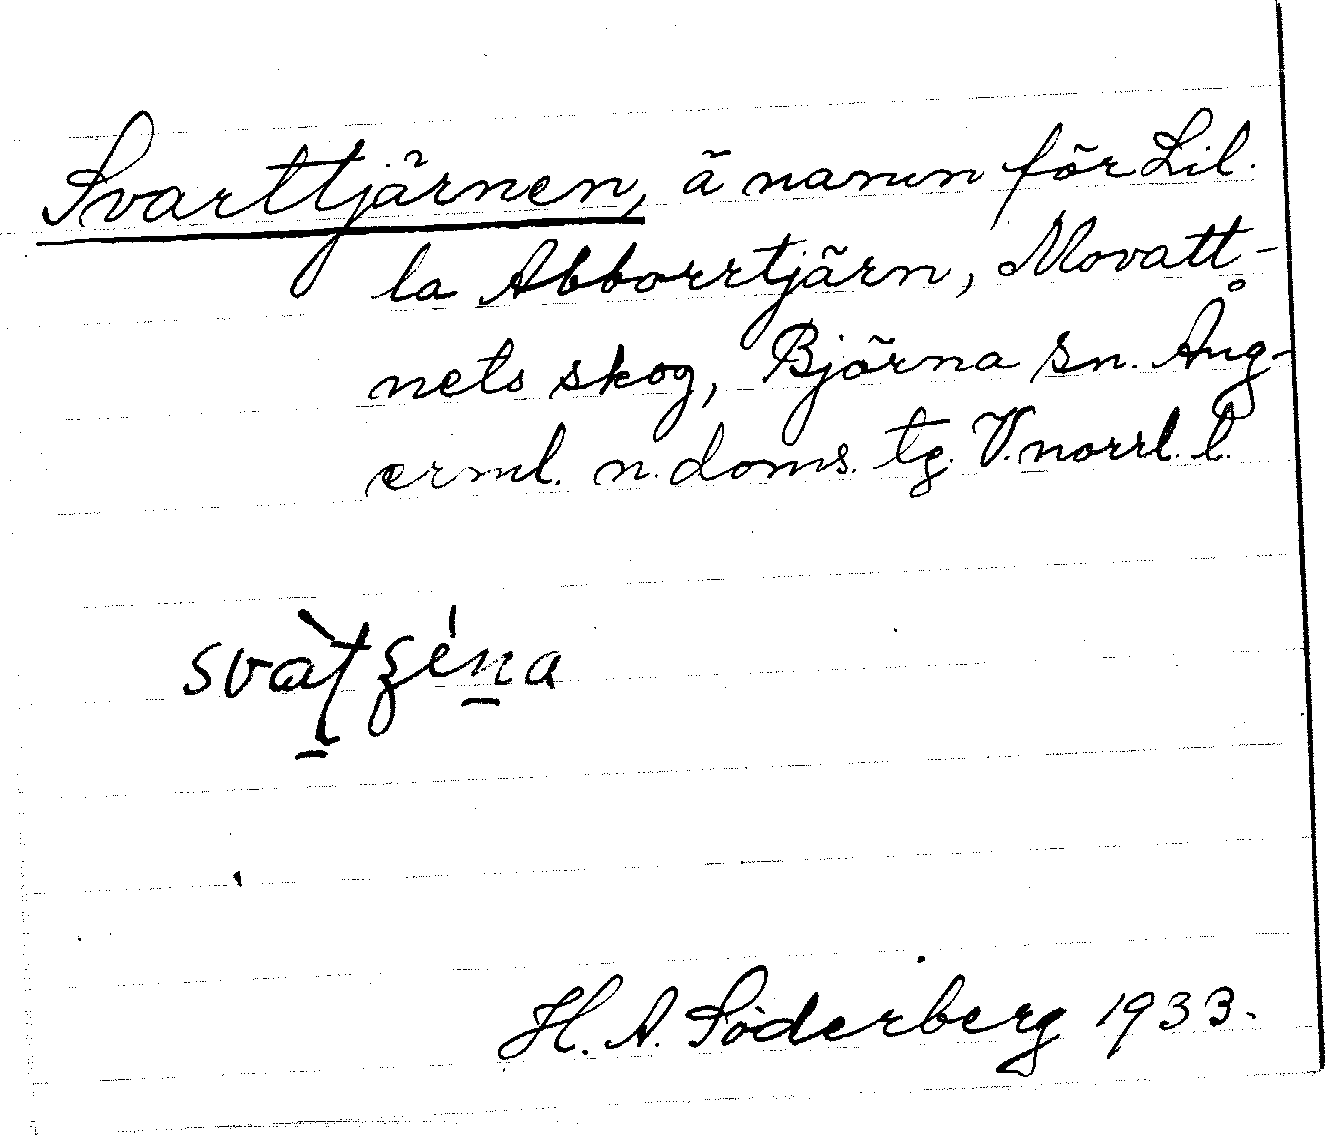 Svarttjärnen, ä namn för Lil-
la Abborrtjärn, Movatt-
nets skog, Björna sn. Ång-
erml. n. doms. tg. V.norrl. l.
H. A. Söderberg 1933.